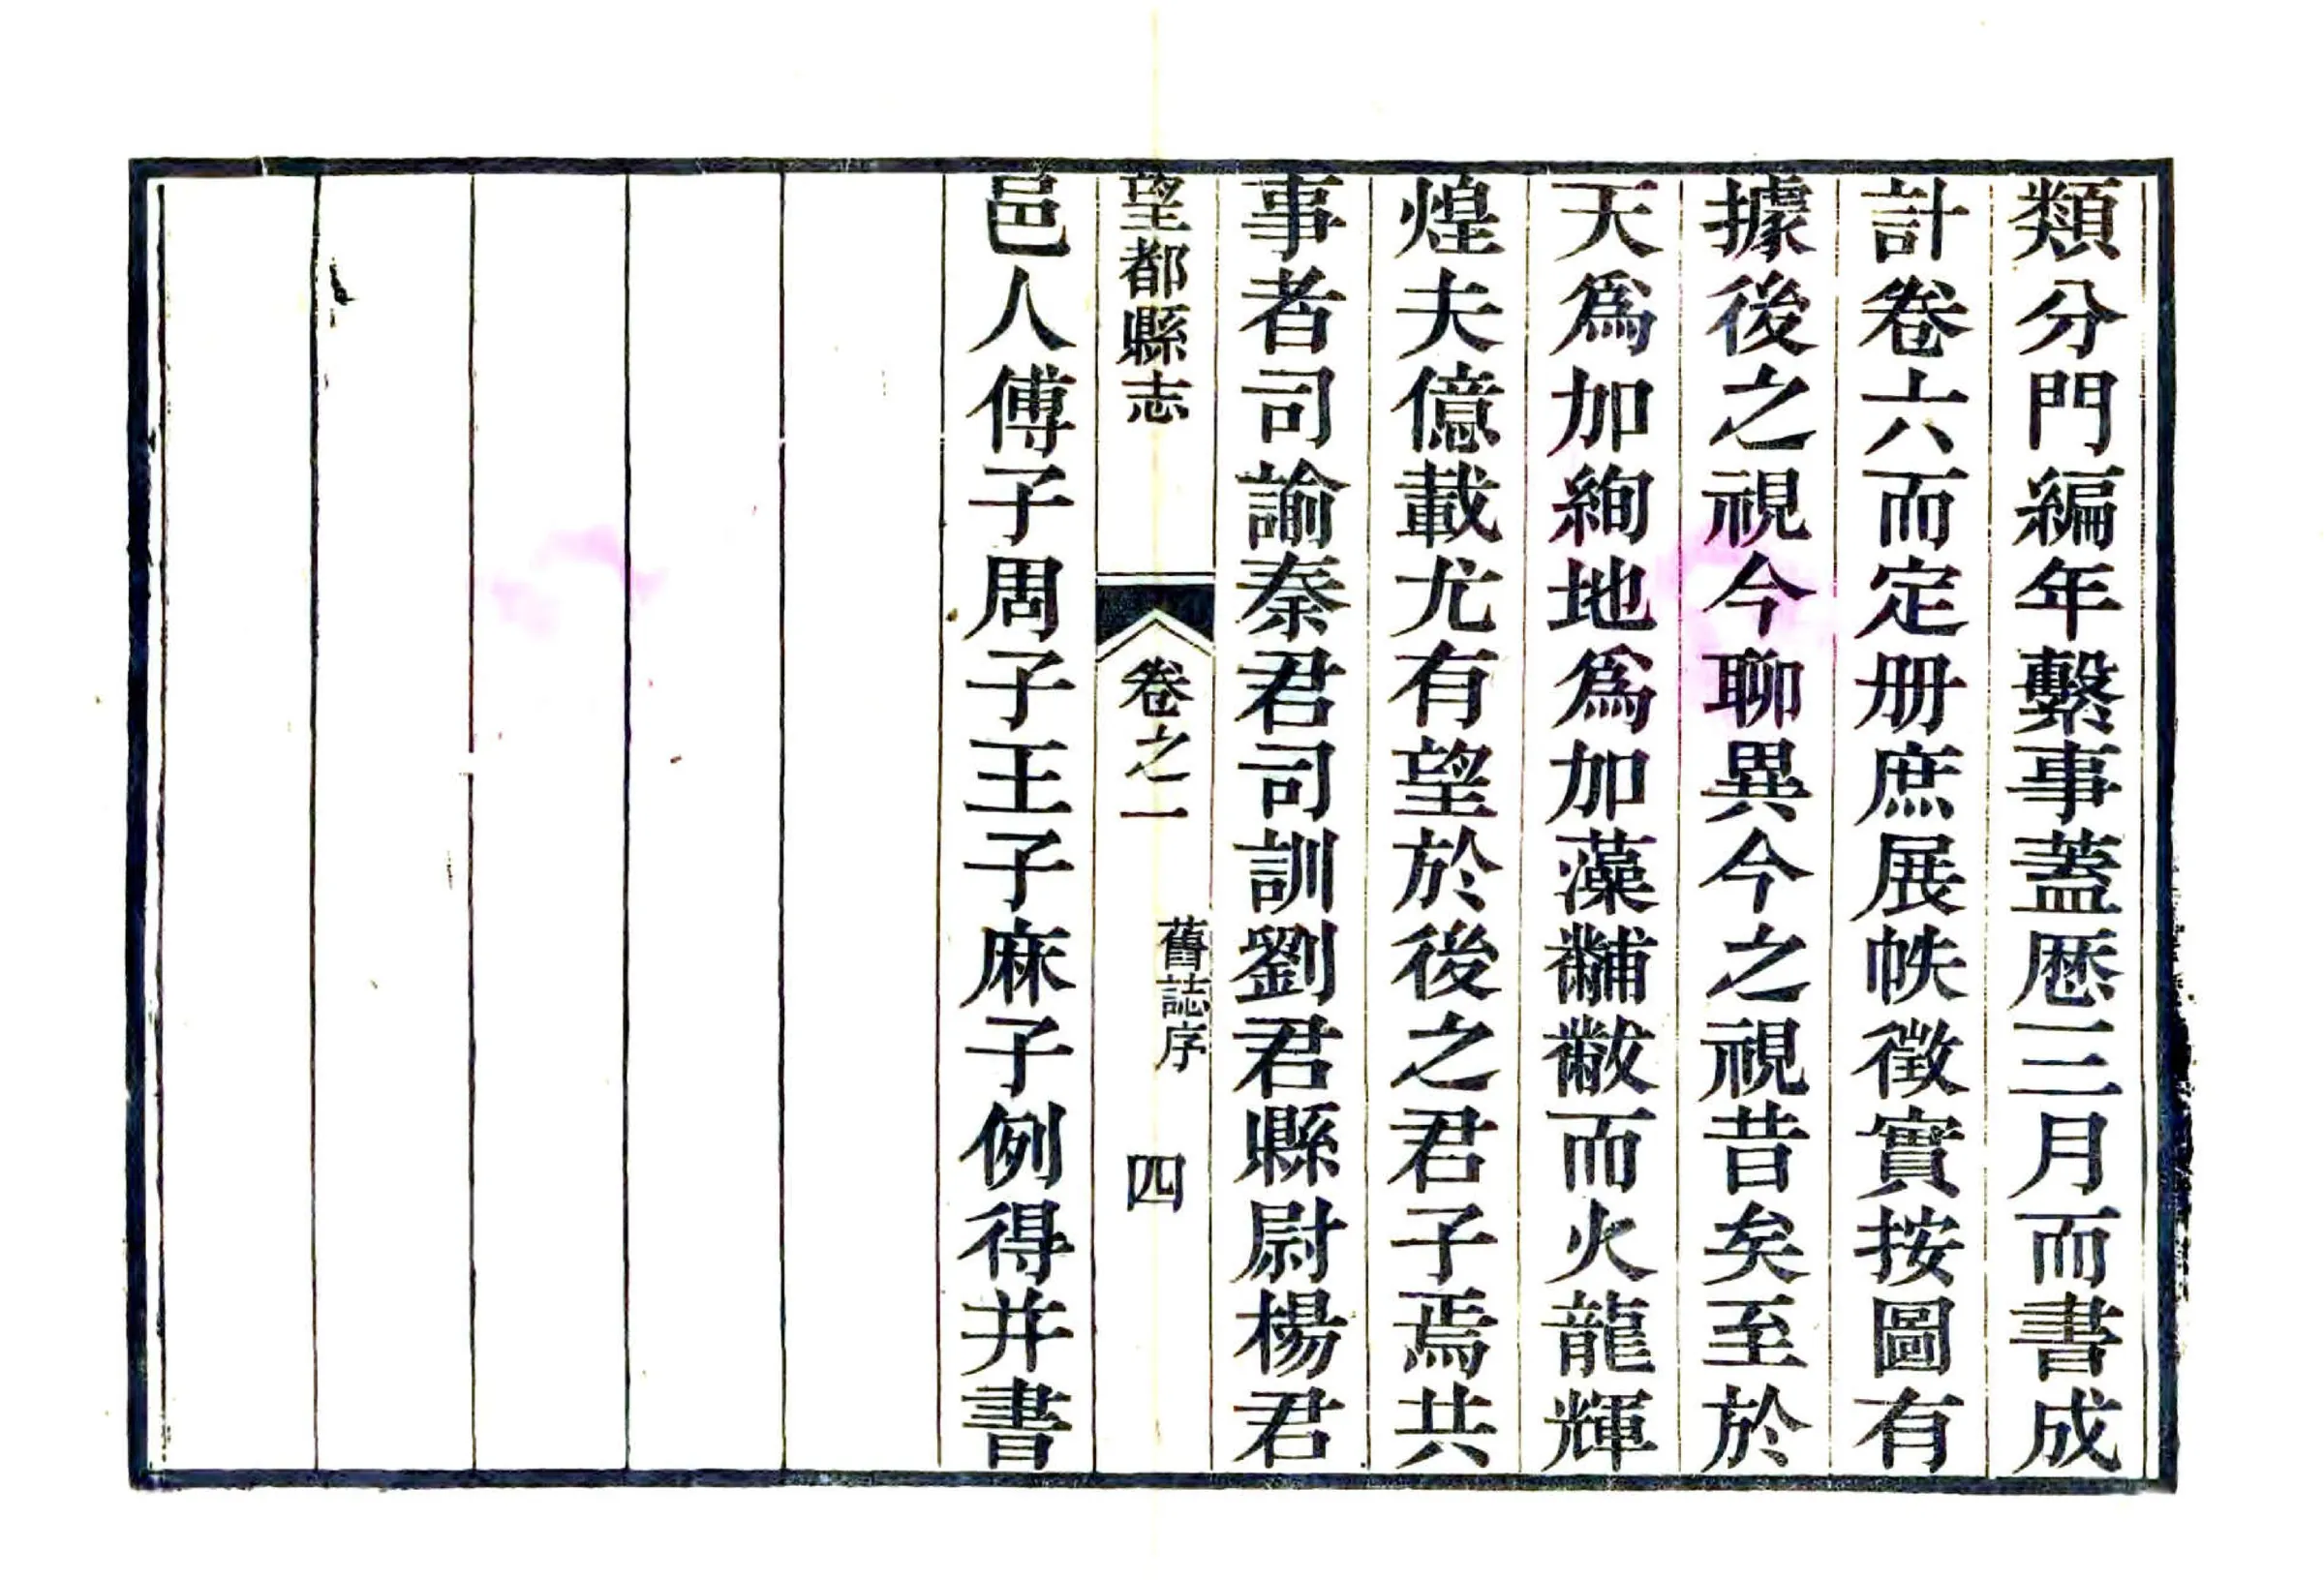 類分門編年繫事蓋歷三月而書成
計卷六而定册庶展帙徵實按圖有
據後之視今聊異今之視昔矣至於
天爲加絢地爲加藻黼黻而火龍輝
煌夫億載尤有望於後之君子焉共
事者司諭秦君司訓劉君縣尉楊君
望都縣志
卷之一
舊誌序
四
邑人傅子周子王子麻子例得并書